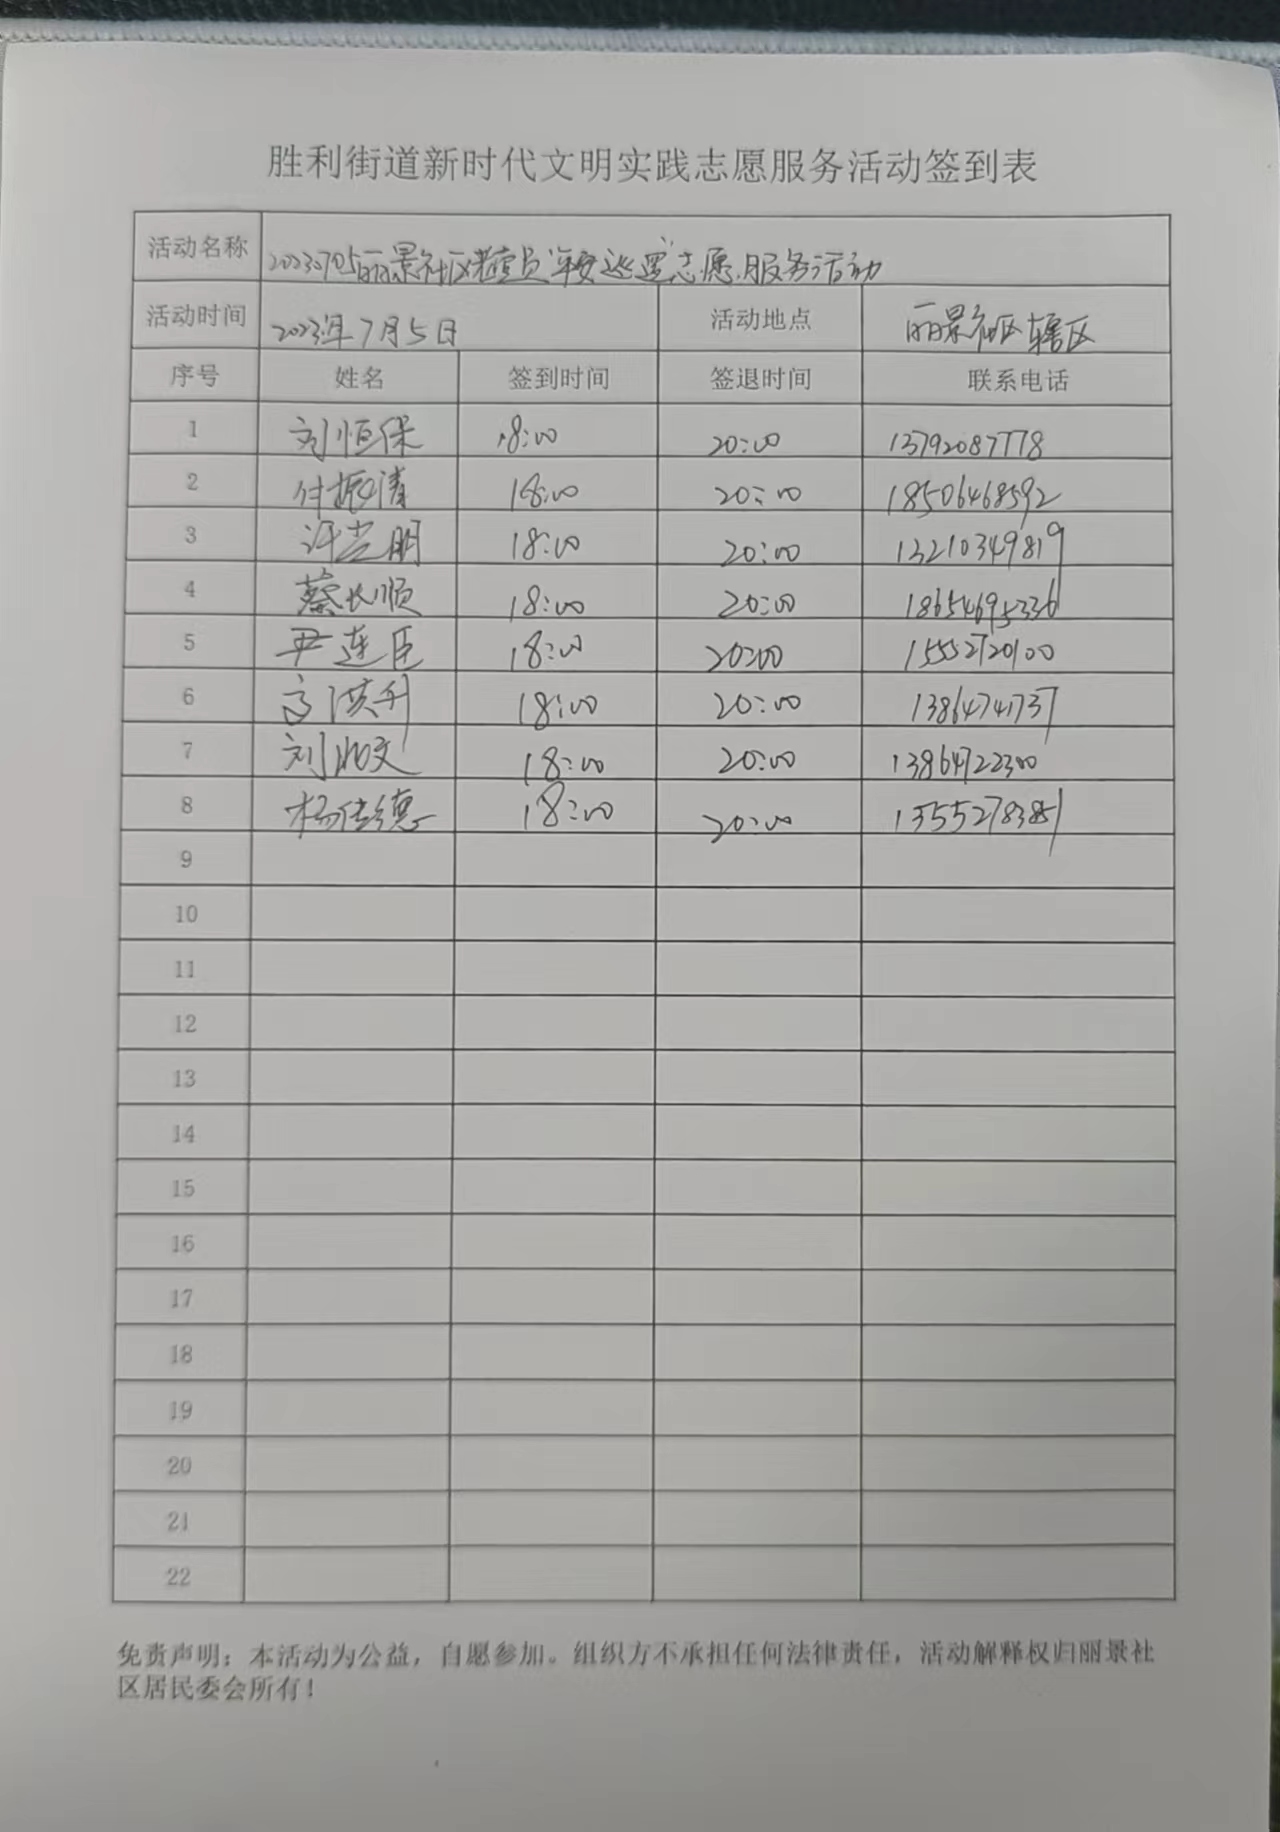 胜利街道新时代文明实践志愿服务活动签到表
活动名称 20230705丽景社区老党员“平安巡逻”志愿服务活动
活动时间 2023年7月5日 活动地点 丽景社区辖区
序号 姓名 签到时间 签退时间 联系电话
1 刘恒保 18:00 20:00 13792087778
2 付振清 18:00 20:00 18506468592
3 许光明 18:00 20:00 13210349819
4 蔡长顺 18:00 20:00 18654695336
5 尹连臣 18:00 20:00 15552720100
6 高洪利 18:00 20:00 13864741737
7 刘 文 18:00 20:00 13864722300
8 杨传德 18:00 20:00 13555278385
9
10
11
12
13
14
15
16
17
18
19
20
21
22
免责声明：本活动为公益，自愿参加。组织方不承担任何法律责任，活动解释权归丽景社
区居民委会所有！